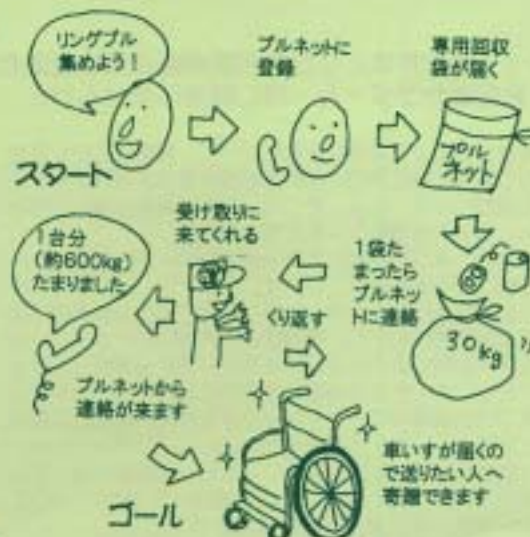 リングプル
集めよう!
スタート
プルネットに
登録
専用回収
袋が届く
プル
ネット
1袋た
まったら
プルネッ
トに連絡
30kg
受け取りに
来てくれる
くり返す
1台分
(約600kg)
たまりました
プルネットから
連絡が来ます
車いすが届くの
で送りたい人へ
寄贈できます
ゴール